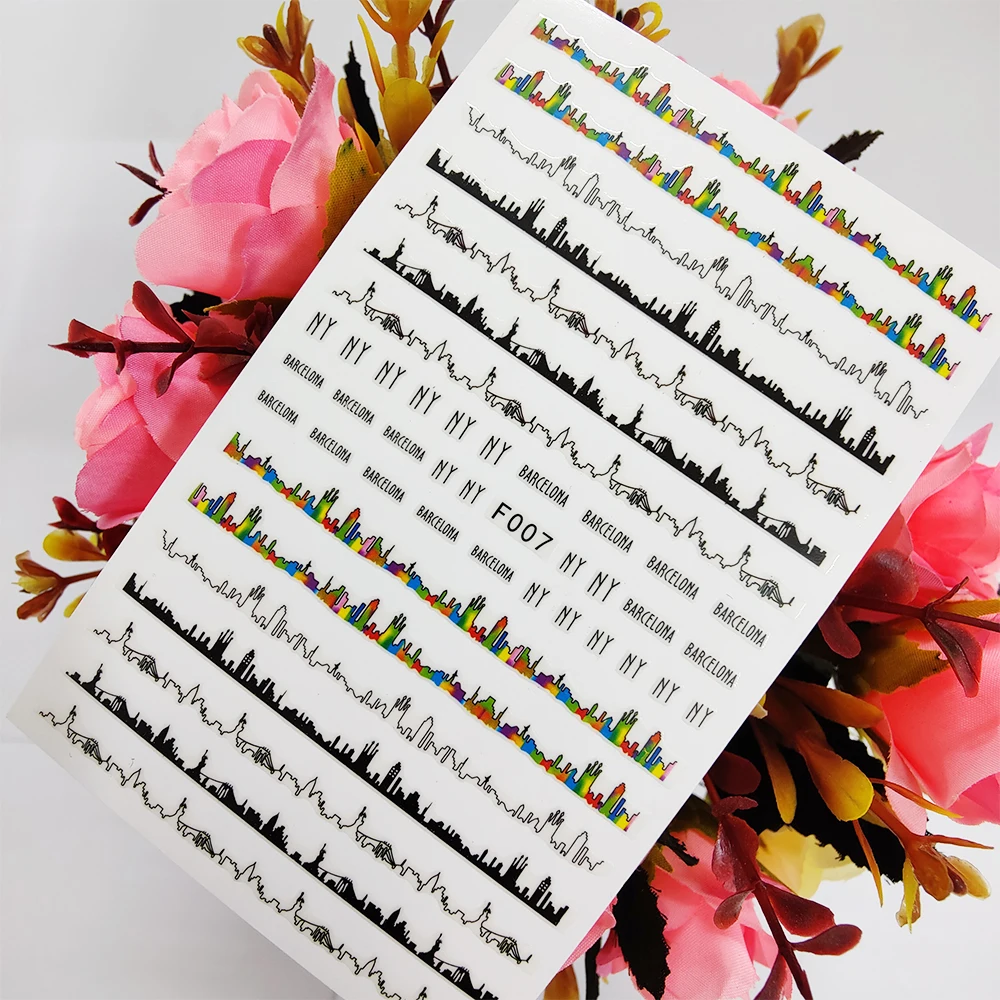 NY NY NY NY NY NY BARCELONA BARCELONA BARCELONA BARCELONA
BARCELONA BARCELONA BARCELONA NY NY F007 NY NY BARCELONA BARCELONA
BARCELONA BARCELONA BARCELONA BARCELONA BARCELONA NY NY NY NY NY NY